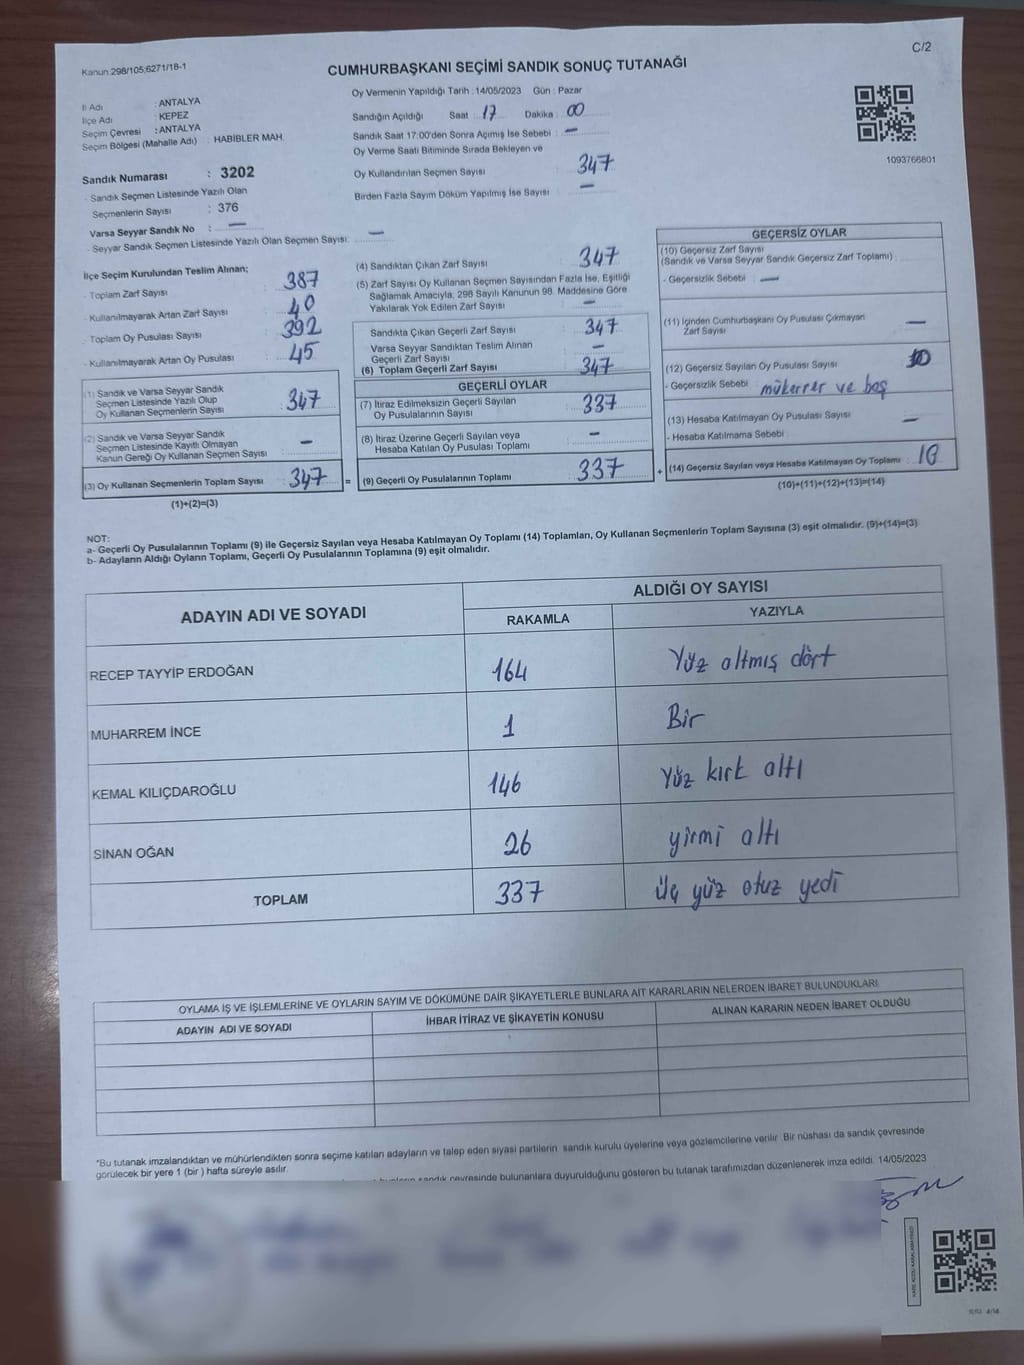 C/2
Kanun 298/105;6271/18-1
CUMHURBAŞKANI SEÇİMİ SANDIK SONUÇ TUTANAĞI
İl Adı : ANTALYA
İlçe Adı : KEPEZ
Seçim Çevresi : ANTALYA
Seçim Bölgesi (Mahalle Adı) : HABİBLER MAH.
Sandık Numarası : 3202
- Sandık Seçmen Listesinde Yazılı Olan
Seçmenlerin Sayısı : 376
Varsa Seyyar Sandık No : —
- Seyyar Sandık Seçmen Listesinde Yazılı Olan Seçmen Sayısı: —
Oy Vermenin Yapıldığı Tarih : 14/05/2023 Gün : Pazar
Sandığın Açıldığı Saat : 17 Dakika : 00
Sandık Saat 17:00'den Sonra Açımış İse Sebebi : —
Oy Verme Saati Bitiminde Sırada Bekleyen ve
Oy Kullandırılan Seçmen Sayısı : 347
Birden Fazla Sayım Döküm Yapılmış İse Sayısı : —
1093766801
İlçe Seçim Kurulundan Teslim Alınan;
- Toplam Zarf Sayısı : 387
- Kullanılmayarak Artan Zarf Sayısı : 40
- Toplam Oy Pusulası Sayısı : 392
- Kullanılmayarak Artan Oy Pusulası : 45
(1) Sandık ve Varsa Seyyar Sandık
Seçmen Listesinde Yazılı Olup
Oy Kullanan Seçmenlerin Sayısı : 347
(2) Sandık ve Varsa Seyyar Sandık
Seçmen Listesinde Kayıtlı Olmayan
Kanun Gereği Oy Kullanan Seçmen Sayısı : —
(3) Oy Kullanan Seçmenlerin Toplam Sayısı : 347 =
(1)+(2)=(3)
(4) Sandıktan Çıkan Zarf Sayısı : 347
(5) Zarf Sayısı Oy Kullanan Seçmen Sayısından Fazla İse, Eşitliği
Sağlamak Amacıyla, 298 Sayılı Kanunun 98. Maddesine Göre
Yakılarak Yok Edilen Zarf Sayısı : —
Sandıkta Çıkan Geçerli Zarf Sayısı : 347
Varsa Seyyar Sandıktan Teslim Alınan
Geçerli Zarf Sayısı : —
(6) Toplam Geçerli Zarf Sayısı : 347
GEÇERLİ OYLAR
(7) İtiraz Edilmeksizin Geçerli Sayılan
Oy Pusulalarının Sayısı : 337
(8) İtiraz Üzerine Geçerli Sayılan veya
Hesaba Katılan Oy Pusulası Toplamı : —
(9) Geçerli Oy Pusulalarının Toplamı : 337 +
GEÇERSİZ OYLAR
(10) Geçersiz Zarf Sayısı
(Sandık ve Varsa Seyyar Sandık Geçersiz Zarf Toplamı)
- Geçersizlik Sebebi : —
(11) İçinden Cumhurbaşkanı Oy Pusulası Çıkmayan
Zarf Sayısı : —
(12) Geçersiz Sayılan Oy Pusulası Sayısı : 10
- Geçersizlik Sebebi : mükerrer ve boş
(13) Hesaba Katılmayan Oy Pusulası Sayısı : —
- Hesaba Katılmama Sebebi :
(14) Geçersiz Sayılan veya Hesaba Katılmayan Oy Toplamı : 10
(10)+(11)+(12)+(13)=(14)
NOT:
a- Geçerli Oy Pusulalarının Toplamı (9) ile Geçersiz Sayılan veya Hesaba Katılmayan Oy Toplamı (14) Toplamları, Oy Kullanan Seçmenlerin Toplam Sayısına (3) eşit olmalıdır. (9)+(14)=(3)
b- Adayların Aldığı Oyların Toplamı, Geçerli Oy Pusulalarının Toplamına (9) eşit olmalıdır.
ADAYIN ADI VE SOYADI ALDIĞI OY SAYISI
RAKAMLA YAZIYLA
RECEP TAYYİP ERDOĞAN 164 Yüz altmış dört
MUHARREM İNCE 1 Bir
KEMAL KILIÇDAROĞLU 146 Yüz kırk altı
SİNAN OĞAN 26 yirmi altı
TOPLAM 337 üç yüz otuz yedi
OYLAMA İŞ VE İŞLEMLERİNE VE OYLARIN SAYIM VE DÖKÜMÜNE DAİR ŞİKAYETLERLE BUNLARA AİT KARARLARIN NELERDEN İBARET BULUNDUKLARI
ADAYIN ADI VE SOYADI İHBAR İTİRAZ VE ŞİKAYETİN KONUSU ALINAN KARARIN NEDEN İBARET OLDUĞU
*Bu tutanak imzalandıktan ve mühürlendikten sonra seçime katılan adayların ve talep eden siyasi partilerin sandık kurulu üyelerine veya gözlemcilerine verilir. Bir nüshası da sandık çevresinde
görülecek bir yere 1 (bir ) hafta süreyle asılır.
sandık çevresinde bulunanlara duyurulduğunu gösteren bu tutanak tarafımızdan düzenlenerek imza edildi. 14/05/2023